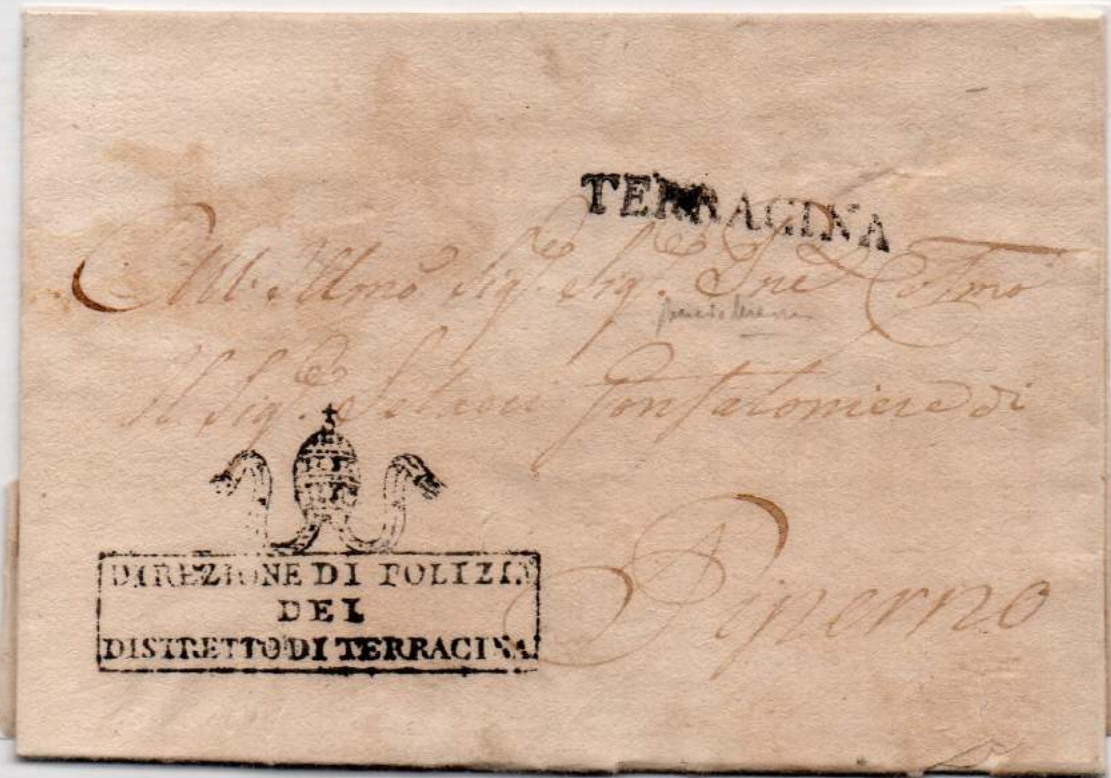 TERRACINA
All Illmo Sig. Sig. Pne Colmo
Il Sig. Gonfaloniere di
Piperno
DIREZIONE DI POLIZIA
DEL
DISTRETTO DI TERRACINA